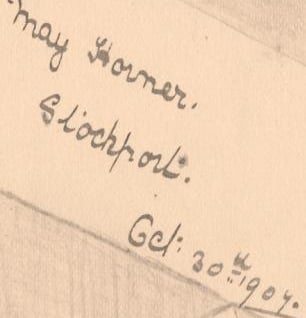 May Horner.
Stockport.
Oct: 30th 1907.